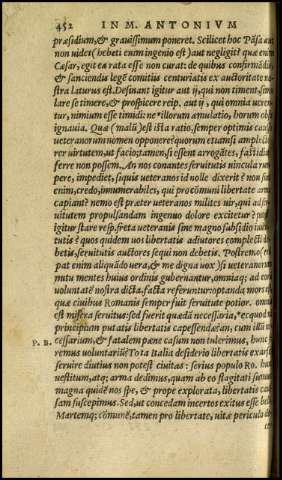 452 IN M. ANTONIVM
præsidium, & grauissimum poneret. Scilicet hoc Pāsa aut
non uidet (hebeti enim ingenio est) aut negligit? quæ enim
Cæsar, egit ea rata esse non curat: de quibus confirmādis,
& sanciendis legē comitiis centuriatis ex auctoritate no-
stra laturus est. Desinant igitur aut ij, qui non timent, simu
lare se timere, & prospicere reip. aut ij, qui omnia uerentur
tur, nimium esse timidi: ne illorum simulatio, horum obsit
ignauia. Quæ (malū) est ista ratio, semper optimis causis
ueteranorum nomen opponere? quorum etiamsi amplecte
rer uirtutem, ut facio, tamen, si essent arrogātes, fastidiū
ferre non possem. An nos conantes seruitutis uincula rum
pere, impediet, siquis ueteranos id nolle dixerit? non sunt
enim, credo, innumerabiles, qui pro cōmuni libertate arma
capiant? nemo est præter ueteranos milites uir, qui ad ser
uitutem propulsandam ingenuo dolore excitetur? potest
igitur stare resp. freta ueteranis sine magno subsidio iuuen
tutis? quos quidem uos libertatis adiutores complecti de-
betis, seruitutis auctores sequi non debetis. Postremo (erū
pat enim aliquādo uera, & me digna uox) si ueteranorum
nutu mentes huius ordinis gubernantur, omniaq; ad eorū
uoluntatē nostra dicta, facta referuntur: optanda mors est,
quæ ciuibus Romanis semper fuit seruitute potior. omnis
est misera seruitus: sed fuerit quædā necessaria, ecquod nā
principium putatis libertatis capessendæ? an, cum illū ne
P. B. cessarium, & fatalem pæne casum non tulerimus, hunc fe
remus uoluntariū? Tota Italia desiderio libertatis exarsit
seruire diutius non potest ciuitas: serius populo Ro. hunc
uestitum, atq; arma dedimus, quam ab eo flagitati sumus.
magna quidē nos spe, & prope explorata, libertatis cau-
sam suscepimus. Sed, ut concedam incertos exitus esse belli,
Martemq; cōmunē, tamen pro libertate, uitæ periculo de